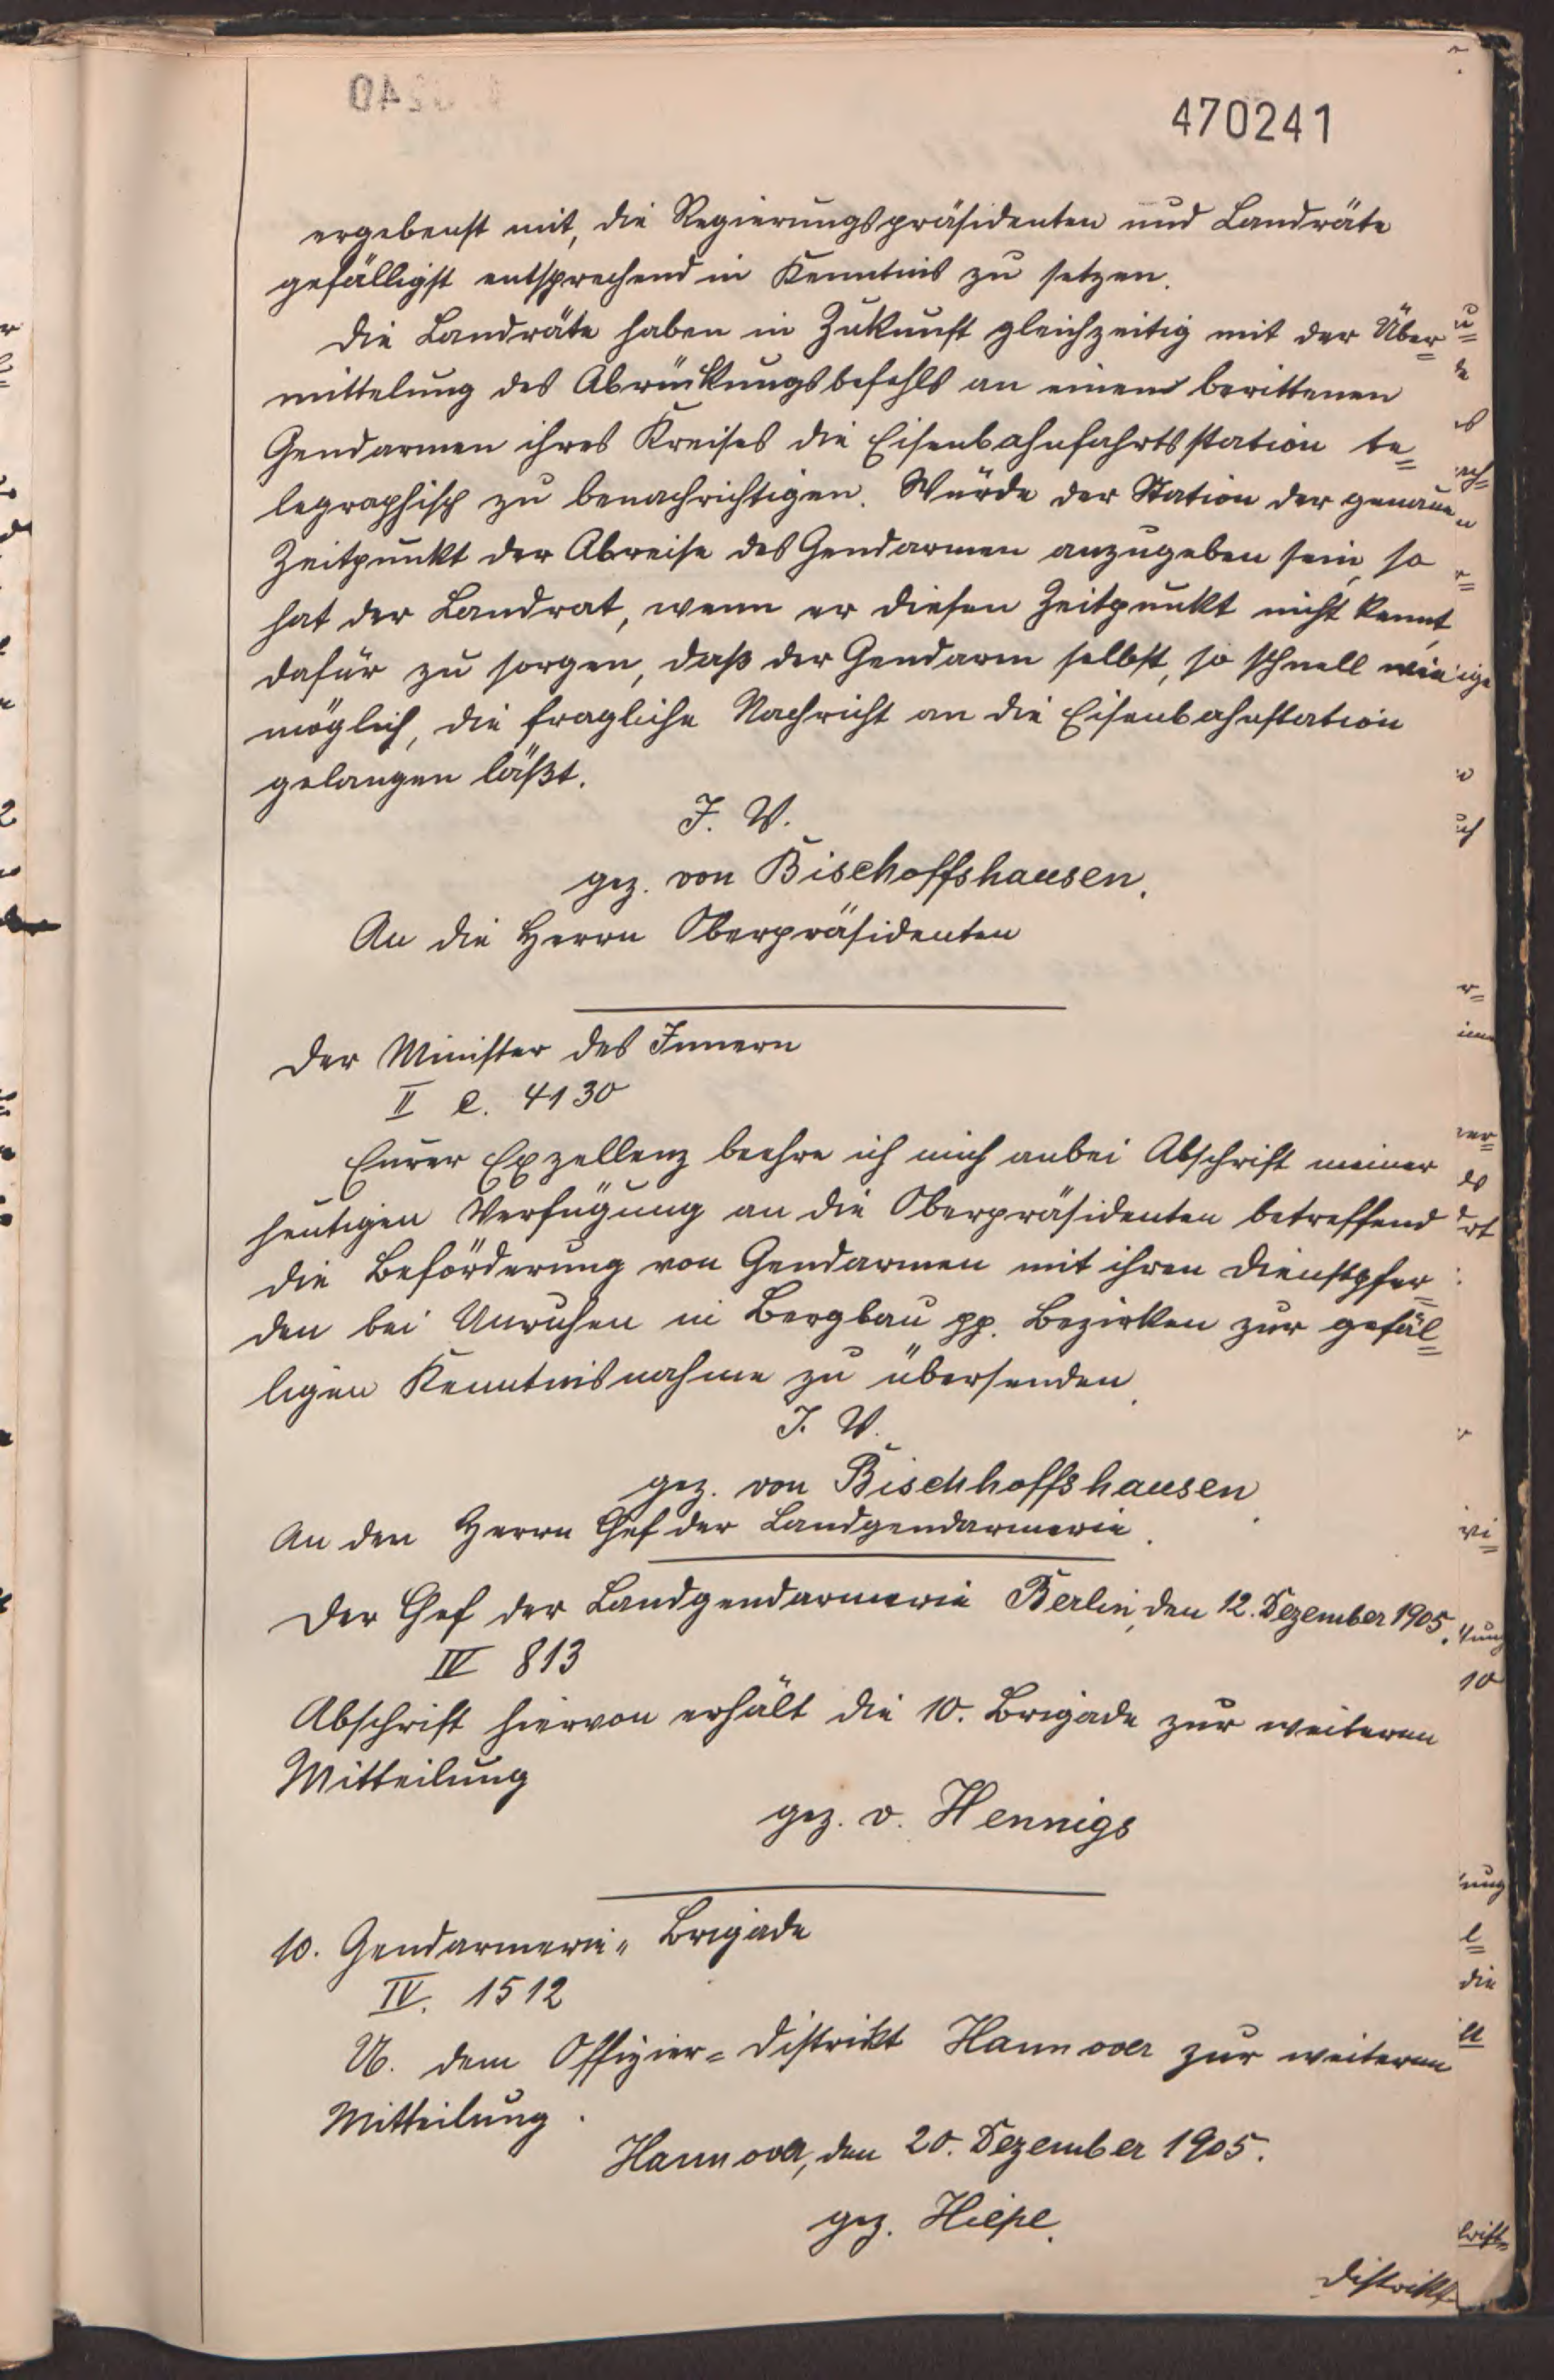 470241
ergebenst mit, die Regierungspräsidenten und Landräte
gefälligst entsprechend in Kenntnis zu setzen.
Die Landräte haben in Zukunft gleichzeitig mit der Über=
mittelung des Abrückungsbefehls an einen berittenen
Gendarmen ihres Kreises die Eisenbahnfahrtsstation te=
legraphisch zu benachrichtigen. Würde der Station der genaue
Zeitpunkt der Abreise des Gendarmen anzugeben sein, so
hat der Landrat, wenn er diesen Zeitpunkt nicht kennt,
dafür zu sorgen, daß der Gendarm selbst, so schnell wie
möglich, die fragliche Nachricht an die Eisenbahnstation
gelangen läßt.
J. V.
gez. von Bischoffshausen.
An die Herrn Oberpräsidenten
Der Minister des Innern
II e. 4130
Eurer Exzellenz beehre ich mich anbei Abschrift meiner
heutigen Verfügung an die Oberpräsidenten betreffend
die Beförderung von Gendarmen mit ihren Dienstpfer=
den bei Unruhen in Bergbau pp. Bezirken zur gefäl=
ligen Kenntnisnahme zu übersenden.
J. V.
gez. von Bischhoffshausen.
An den Herrn Chef der Landgendarmerie.
Der Chef der Landgendarmerie Berlin, den 12. Dezember 1905.
IV 813
Abschrift hiervon erhält die 10. Brigade zur weiteren
Mitteilung
gez. v. Hennigs
10. Gendarmerie= Brigade
IV. 1512
U. dem Offizier= Distrikt Hannover zur weiteren
Mitteilung.
Hannover, den 20. Dezember 1905.
gez. Hiepe.
Distrikt